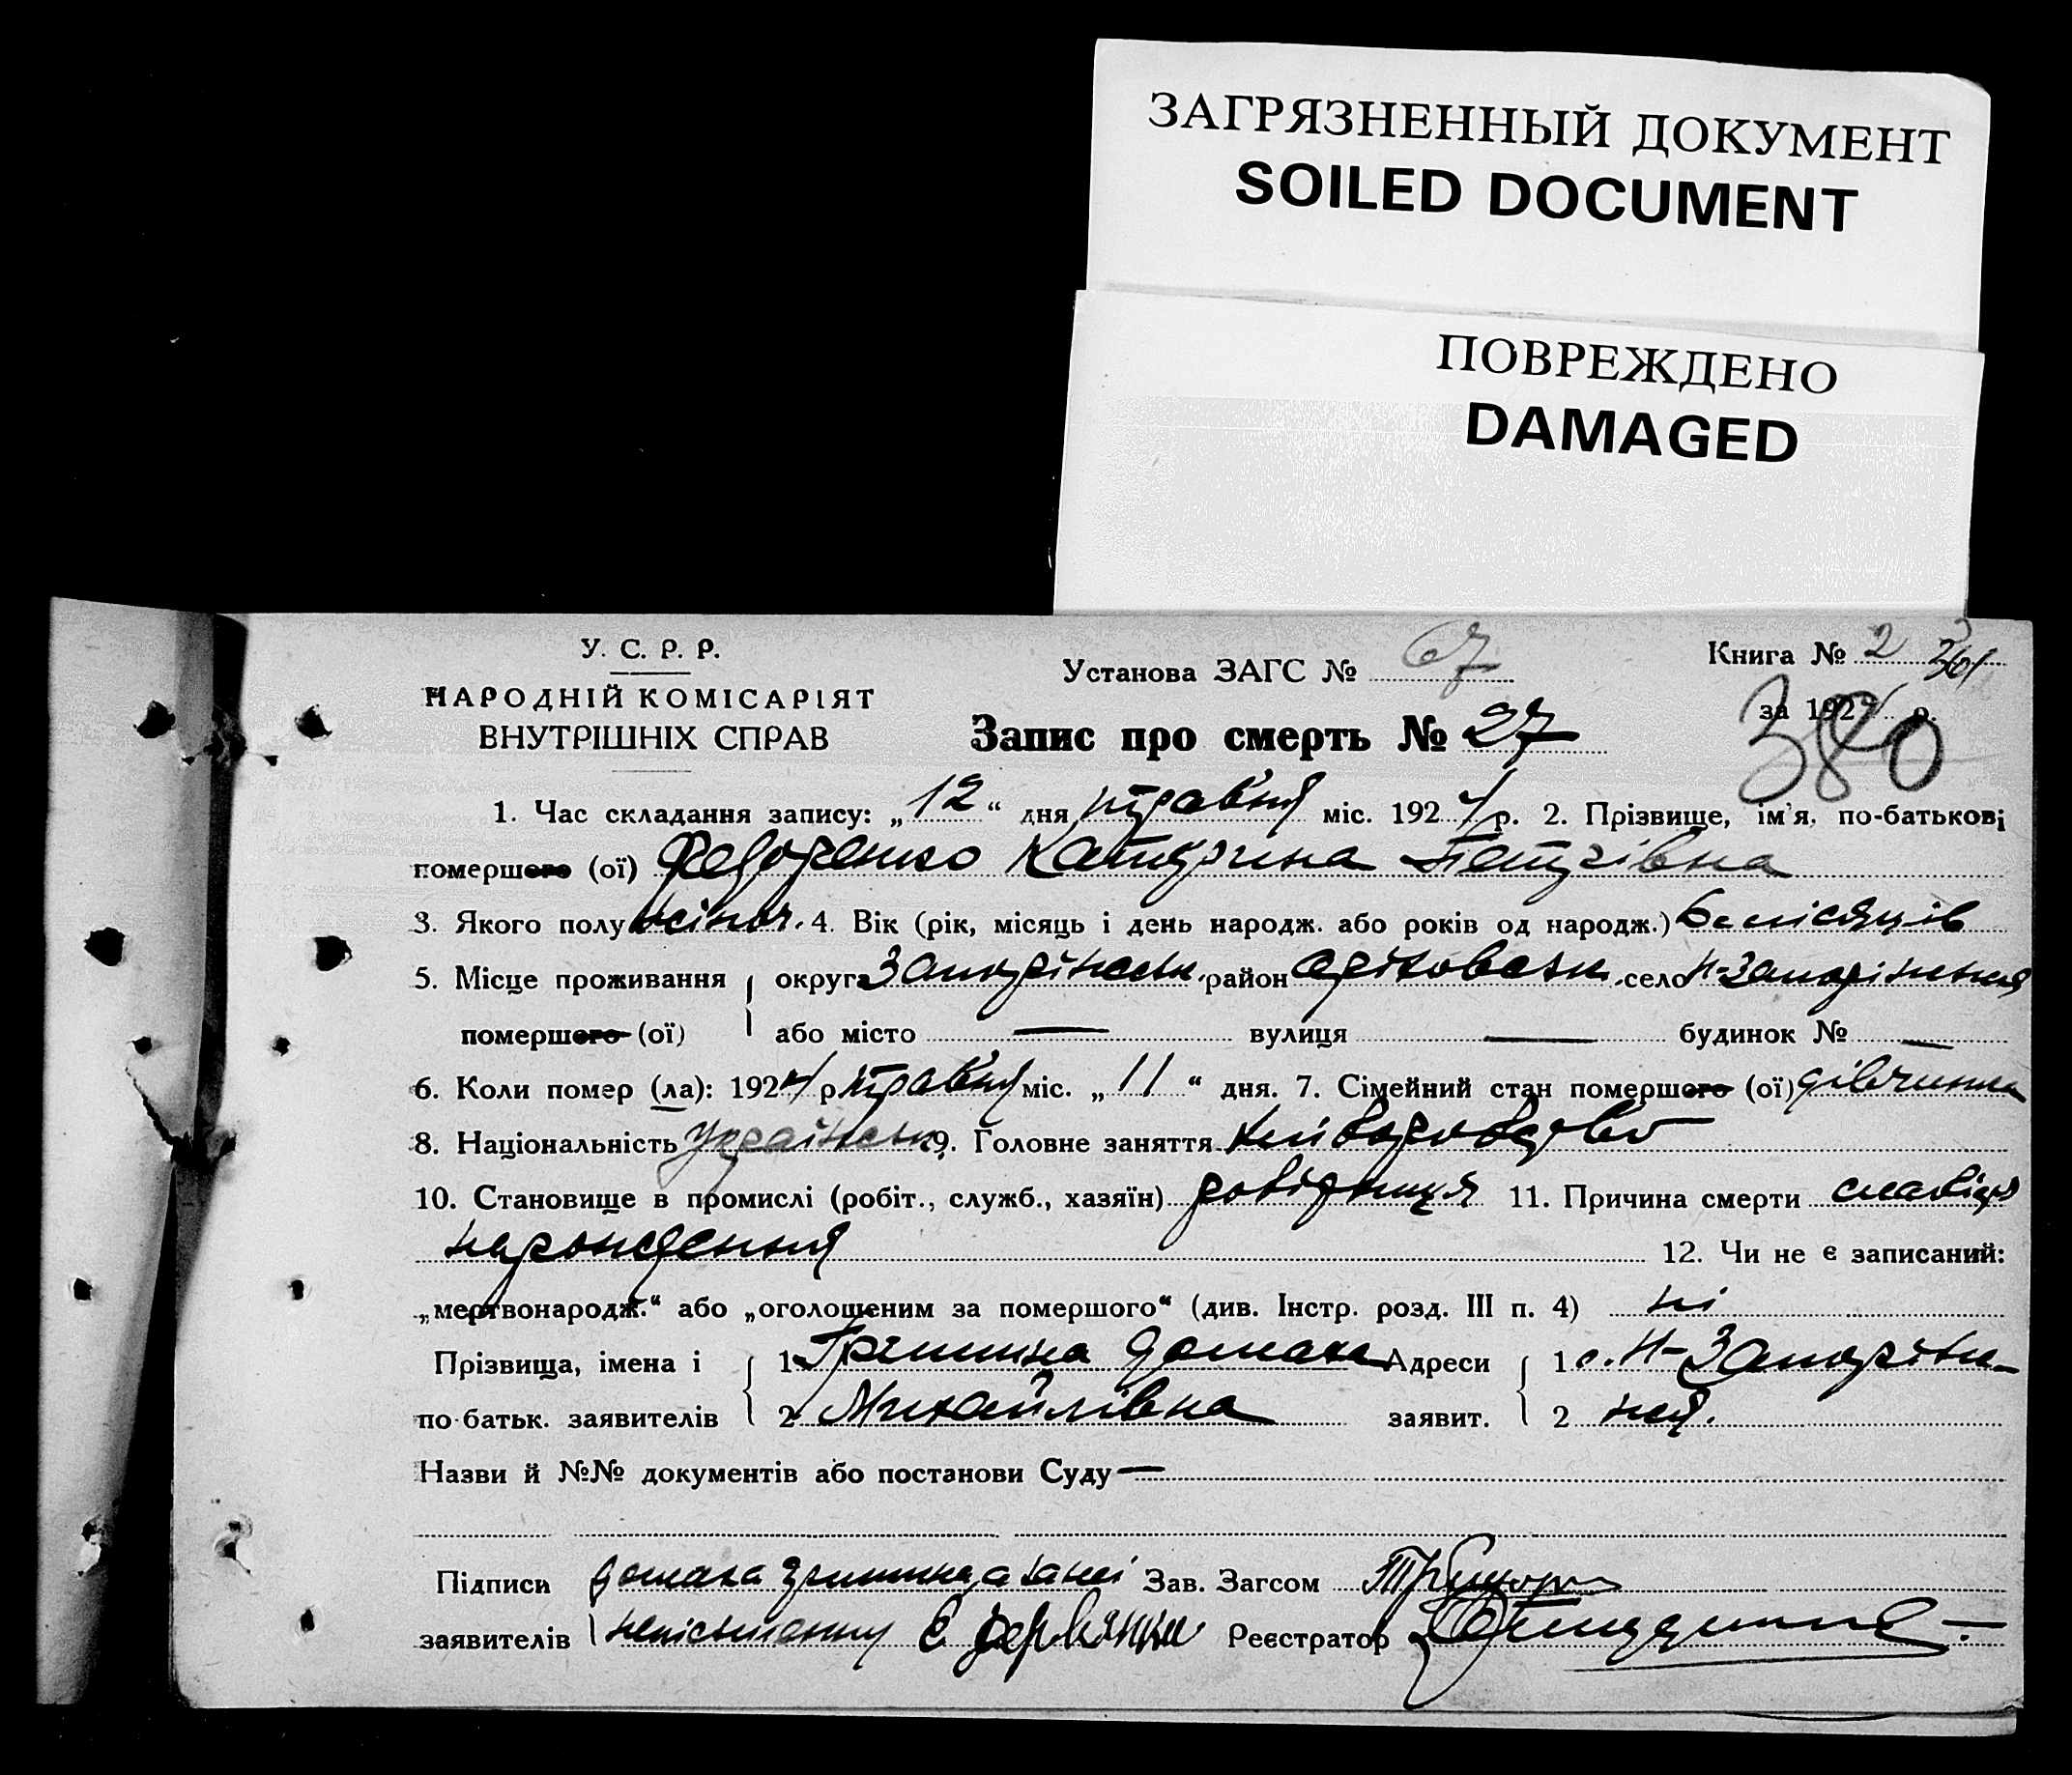 ЗАГРЯЗНЕННЫЙ ДОКУМЕНТ
SOILED DOCUMENT
ПОВРЕЖДЕНО
DAMAGED
У. С. Р. Р.
НАРОДНІЙ КОМІСАРІЯТ
ВНУТРІШНІХ СПРАВ
Установа ЗАГС № 67
Запис про смерть № 27
Книга № 2
за 1924 р.
380
1. Час складання запису: „12“ дня травня міс. 1924 р. 2. Прізвище, ім'я, по-батькові
помершого (ої) Федоренко Катерина Петрівна
3. Якого полу жіноч. 4. Вік (рік, місяць і день народж. або років од народж.) 6 місяців
5. Місце проживання округа Запоріжськ. район Оріховськ. село Н-Запоріжжя
помершого (ої) або місто — вулиця — будинок № —
6. Коли помер (ла): 1924 р. травня міс. „11“ дня. 7. Сімейний стан помершого (ої) дівчинка
8. Національність Українськ. 9. Головне заняття хліборобство
10. Становище в промислі (робіт., служб., хазяїн) 11. Причина смерти
нарождення 12. Чи не є записаний:
„мертвонародж.“ або „оголошеним за помершого“ (див. Інстр. розд. III п. 4) ні
Прізвища, імена і 1 Гришина Домаха Адреси 1 с. Н-Запоріж-
по батьк. заявителів 2 Михайлівна заявит. 2 жя.
Назви й №№ документів або постанови Суду —
Підписи Домаха Зав. Загсом
заявителів Реєстратор